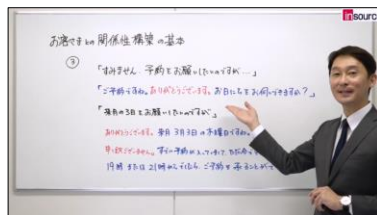 insource
お客さまとの関係性構築の基本
③
「すみません、予約をお願いしたいのですが…」
「ご予約ですね。ありがとうございます。お日にちをお伺いできますか?」
「来月の3日をお願いしたいのですが」
ありがとうございます。来月3月3日の木曜日ですね。
申し訳ございません。すでに予約が入っていまして、ただ今
19時または21時からでしたら、ご予約を承ることが